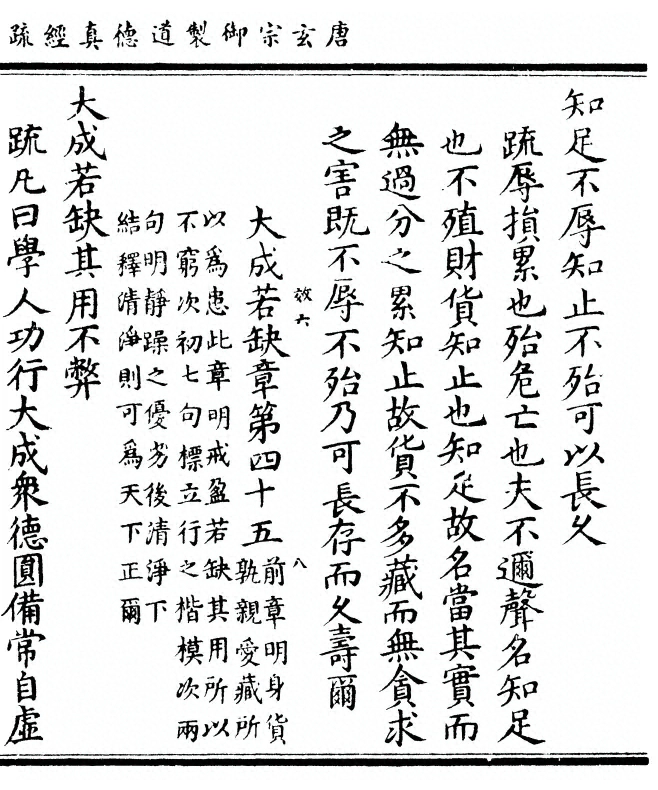 唐玄宗御製道德真經疏
知足不辱知止不殆可以長久
疏辱損累也殆危亡也夫不邇聲名知足
也不殖財貨知止也知足故名當其實而
無過分之累知止故貨不多藏而無貪求
之害既不辱不殆乃可長存而久壽爾
效六
八
大成若缺章第四十五
前章明身貨
孰親愛藏所
以為患此章明戒盈若缺其用所以
不窮次初七句標立行之楷模次兩
句明靜躁之優劣後清淨下
結釋清淨則可為天下正爾
大成若缺其用不弊
疏凡曰學人功行大成衆德圓備常自虛